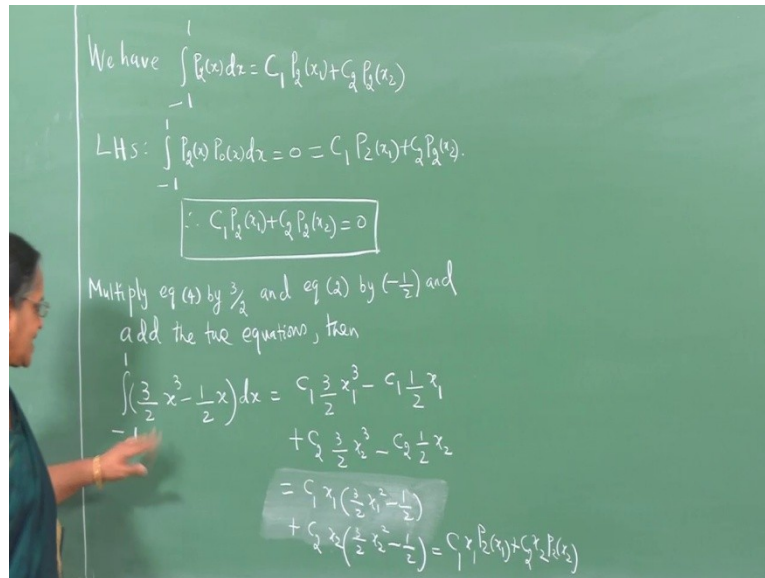 We have ∫₋₁¹ P₂(x)dx = C₁ P₂(x₁) + C₂ P₂(x₂)
LHS: ∫₋₁¹ P₂(x) P₀(x)dx = 0 = C₁ P₂(x₁) + C₂ P₂(x₂).
∴ C₁ P₂(x₁) + C₂ P₂(x₂) = 0
Multiply eq (4) by 3/2 and eq (2) by (-1/2) and
add the two equations, then
∫₋₁¹ (3/2 x³ - 1/2 x) dx = C₁ 3/2 x₁³ - C₁ 1/2 x₁
+ C₂ 3/2 x₂³ - C₂ 1/2 x₂
= C₁ x₁ (3/2 x₁² - 1/2)
+ C₂ x₂ (3/2 x₂² - 1/2) = C₁ x₁ P₂(x₁) + C₂ x₂ P₂(x₂)